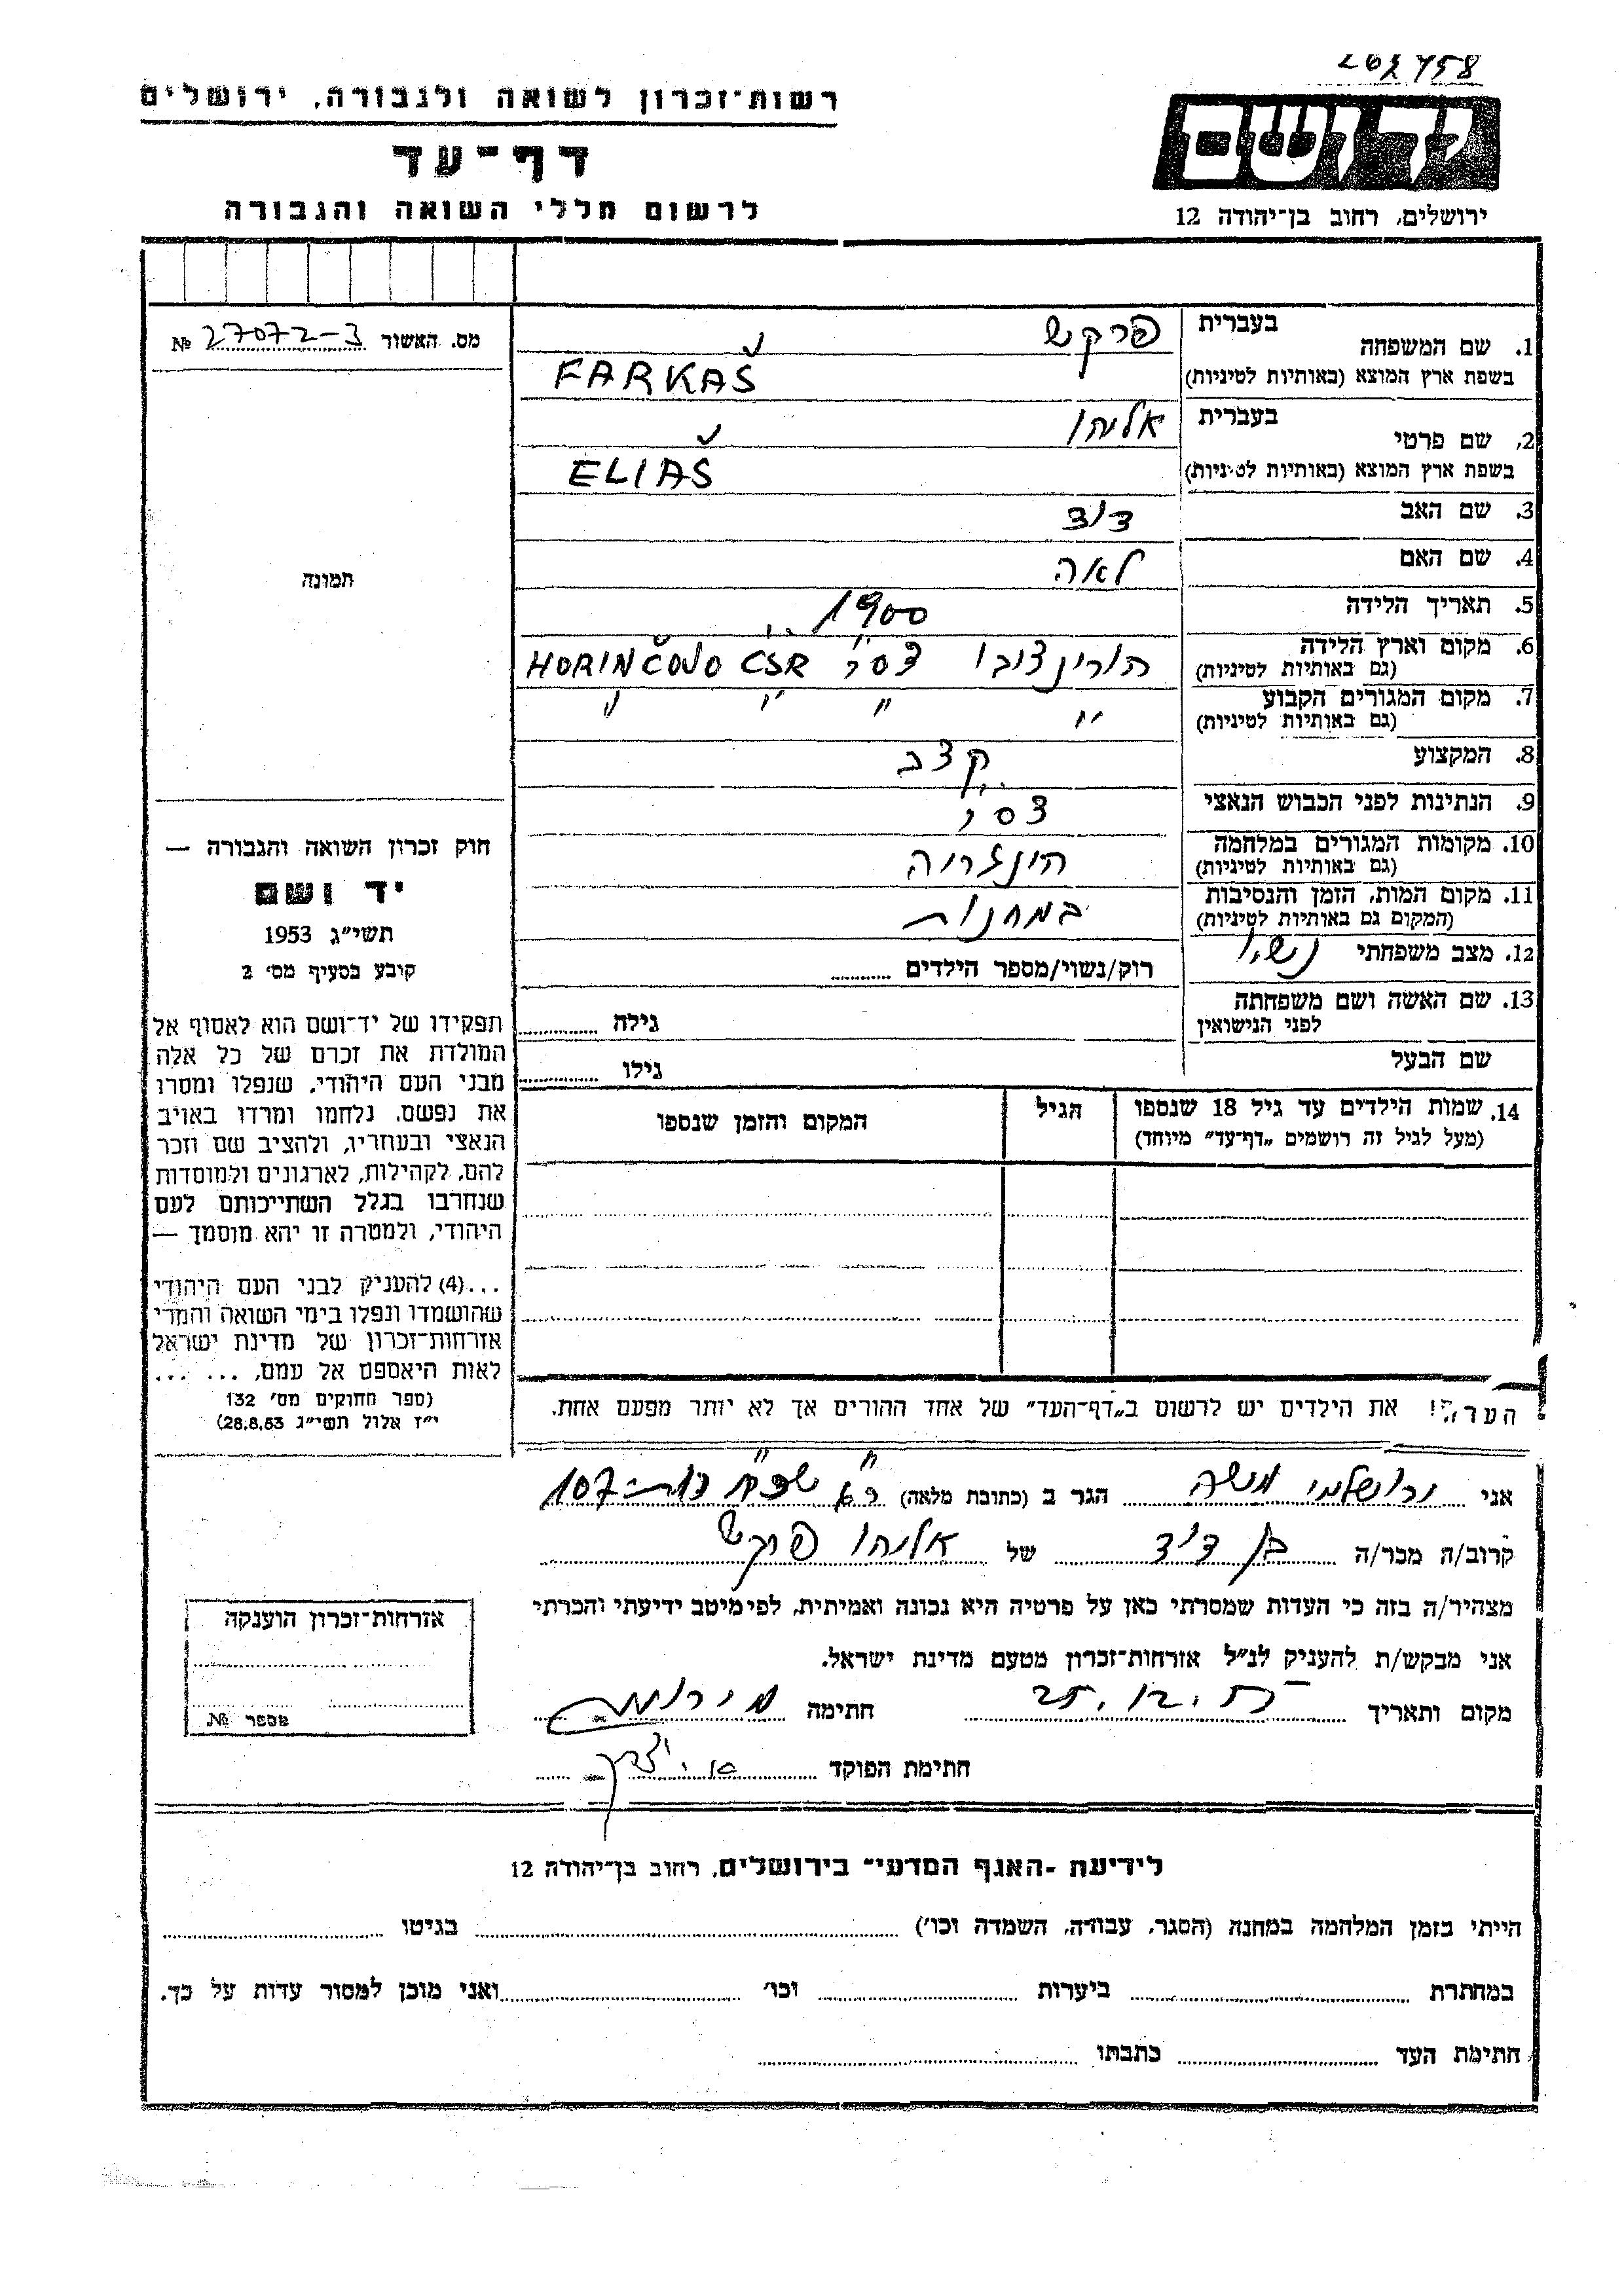 רשות־זכרון לשואה ולגבורה, ירושלים
דף־עד
לרשום חללי השואה והגבורה
יד ושם
ירושלים, רחוב בן־יהודה 12
מס. האשור 27072-3 №
תמונה
חוק זכרון השואה והגבורה —
יד ושם
תשי״ג 1953
קובע בסעיף מס׳ 2
תפקידו של יד־ושם הוא לאסוף אל
המולדת את זכרם של כל אלה
מבני העם היהודי, שנפלו ומסרו
את נפשם, נלחמו ומרדו באויב
הנאצי ובעוזריו, ולהציב שם וזכר
להם, לקהילות, לארגונים ולמוסדות
שנחרבו בגלל השתייכותם לעם
היהודי, ולמטרה זו יהא מוסמך —
...(4) להעניק לבני העם היהודי
שהושמדו ונפלו בימי השואה והמרי
אזרחות־זכרון של מדינת ישראל
לאות היאספם אל עמם, ... ...
(ספר החוקים מס׳ 132
י״ז אלול תשי״ג 28.8.53)
בעברית פרקש
1. שם המשפחה
בשפת ארץ המוצא (באותיות לטיניות) FARKAŠ
בעברית אליהו
2. שם פרטי
בשפת ארץ המוצא (באותיות לטיניות) ELIAŠ
3. שם האב דוד
4. שם האם לאה
5. תאריך הלידה 1900
6. מקום וארץ הלידה הורינצובו צס״ר HORINČOVO ČSR
(גם באותיות לטיניות)
7. מקום המגורים הקבוע " " " "
(גם באותיות לטיניות)
8. המקצוע קצב
9. הנתינות לפני הכבוש הנאצי צסר
10. מקומות המגורים במלחמה הונגריה
(גם באותיות לטיניות)
11. מקום המות, הזמן והנסיבות במחנות
(המקום גם באותיות לטיניות)
12. מצב משפחתי נשוי רוק/נשוי/מספר הילדים
13. שם האשה ושם משפחתה
לפני הנישואין גילה
שם הבעל גילו
14. שמות הילדים עד גיל 18 שנספו הגיל המקום והזמן שנספו
(מעל לגיל זה רושמים „דף־עד״ מיוחד)
הערה! את הילדים יש לרשום ב„דף־העד״ של אחד ההורים אך לא יותר מפעם אחת.
אני ירושלמי משה הגר ב (כתובת מלאה) 107
קרוב/ה מכר/ה בן דוד של אליהו פרקש
מצהיר/ה בזה כי העדות שמסרתי כאן על פרטיה היא נכונה ואמיתית, לפי מיטב ידיעתי והכרתי
אני מבקש/ת להעניק לנ״ל אזרחות־זכרון מטעם מדינת ישראל.
מקום ותאריך 25.12. חתימה
חתימת הפוקד
אזרחות־זכרון הוענקה
מספר №
לידיעת ״האגף המדעי״ בירושלים, רחוב בן־יהודה 12
הייתי בזמן המלחמה במחנה (הסגר, עבודה, השמדה וכו׳) בגיטו
במחתרת ביערות וכו׳ ואני מוכן למסור עדות על כך.
חתימת העד כתבתו